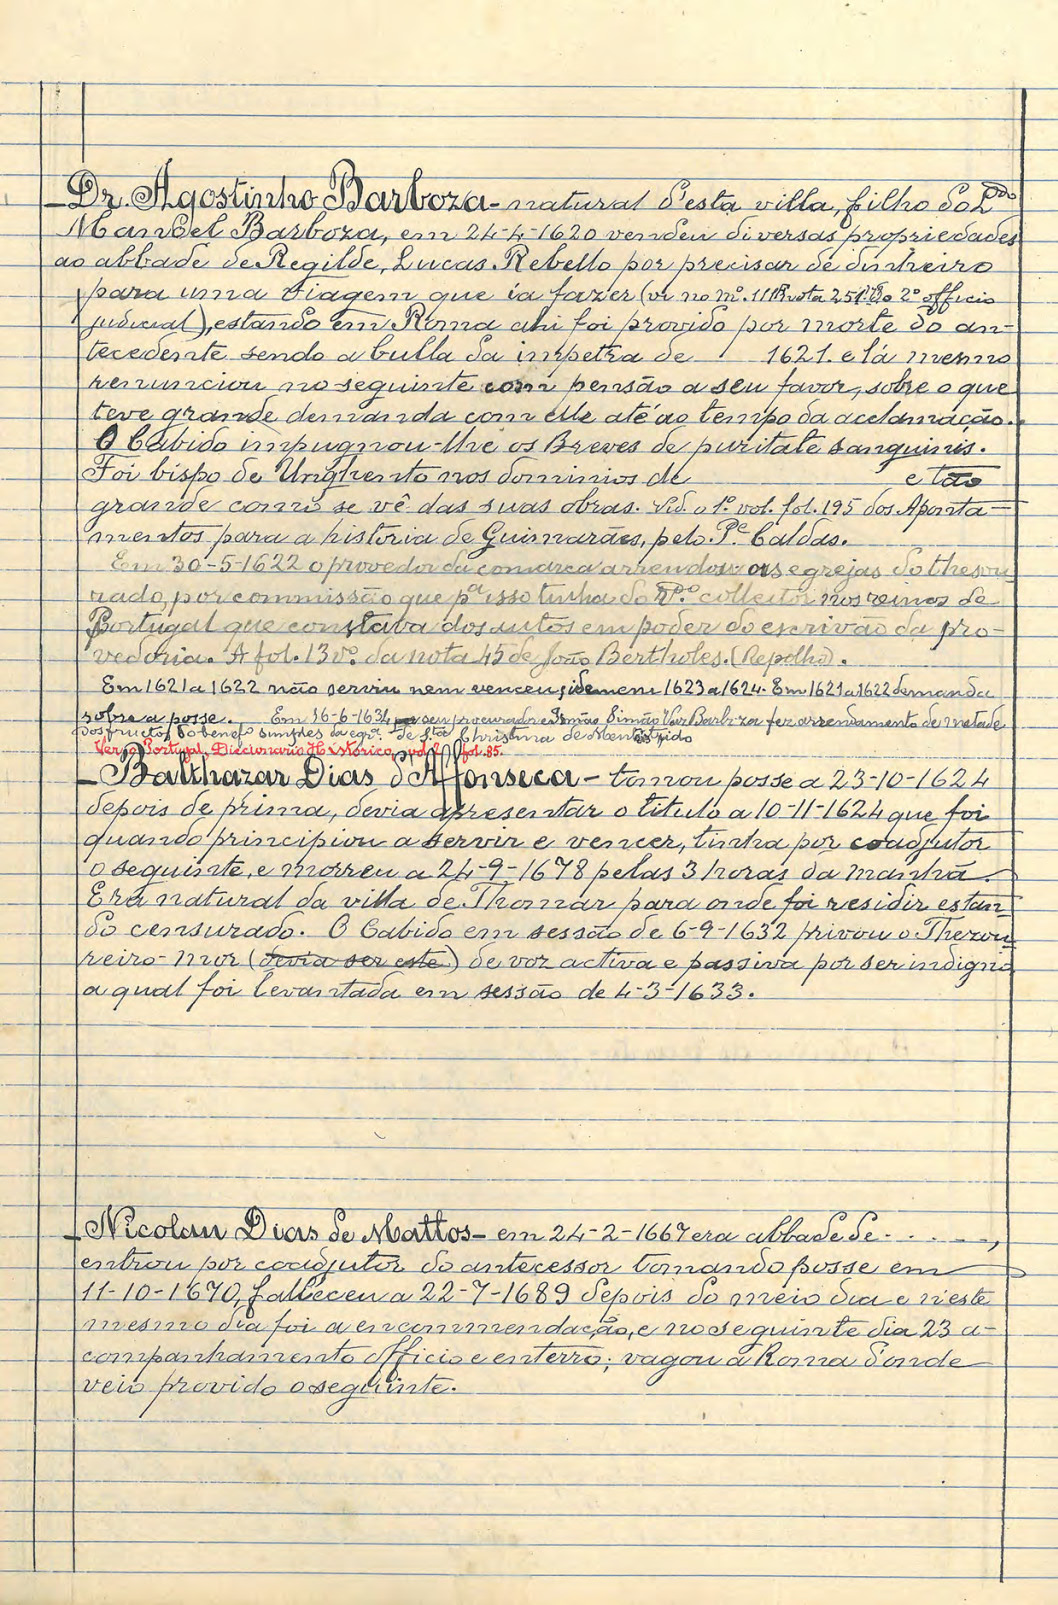 Dr. Agostinho Barboza - natural d'esta villa, filho do L.do
Manoel Barboza, em 24-4-1620 vendeu diversas propriedades
ao abbade de Regilde, Lucas Rebello por precisar de dinheiro
para uma viagem que ia fazer (vi no m.º nota 25 do 2º officio
judicial), estando em Roma ahi foi provido por morte do an-
tecedente sendo a bulla da impetra de 1621. e lá mesmo
renunciou no seguinte com pensão a seu favor, sobre o que
teve grande demanda com elle até ao tempo da acclamação.
O Cabido impugnou-lhe os Breves de puritate sanguinis.
Foi bispo de Unghento nos dominios de e tão
grande como se vê das suas obras. Vid. o 1º. vol. fol. 195 dos Aponta-
mentos para a historia de Guimarães, pelo P.e Caldas.
Em 30-5-1622 o provedor da comarca arrendou as egrejas do thesou
rado, por commissão que p.a isso tinha do collector nos reinos de
Portugal que constava dos autos em poder do escrivão da pro-
vedoria. A fol. 13 vº. da nota 45 de João Bertholes. (Repolho).
Em 1621 a 1622 não serviu nem venceu, idem em 1623 a 1624. Em 1621 a 1622 demanda
sobre a posse. Em 16-6-1634 seu procurador e Irmão Simão Vaz Barboza fez arrendamento de metade
dos fructos do benef.º simples da egr.ª de S.ta Christina de
Verso Portugal, Diccionario Historico, vol. 2 fol. 85.
Balthazar Dias d'Affonseca - tomou posse a 23-10-1624
depois de prima, devia apresentar o titulo a 10-11-1624 que foi
quando principiou a servir e vencer, tinha por coadjutor
o seguinte, e morreu a 24-9-1678 pelas 3 horas da manhã.
Era natural da villa de Thomar para onde foi residir estan
do censurado. O Cabido em sessão de 6-9-1632 privou o Thezou
reiro-mor (devia ser este) de voz activa e passiva por ser indigno
a qual foi levantada em sessão de 4-3-1633.
Nicolau Dias de Mattos - em 24-2-1667 era abbade de . . . .,
entrou por coadjutor do antecessor tomando posse em
11-10-1670, falleceu a 22-7-1689 depois do meio dia e n'este
mesmo dia foi a encommendação, e no seguinte dia 23 a-
companhamento officio e enterro; vagou a Roma donde
veio provido o seguinte.